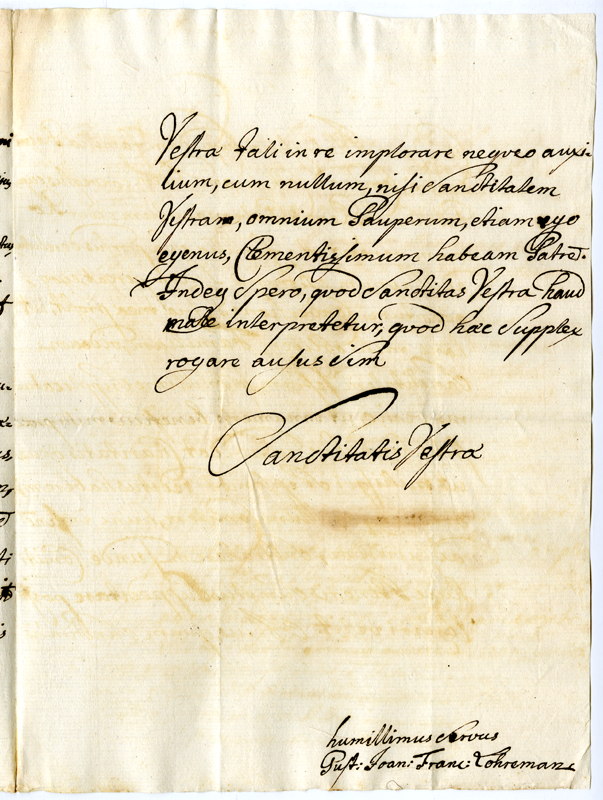 Vestra tali in re implorare nequeo auxi-
lium, cum nullum, nisi Sanctitatem
Vestram, omnium Pauperum, etiam ego
egenus, Clementissimum habeam Patrē.
Indeq Spero, quod Sanctitas Vestra haud
male interpretetur, quod hæc Supplex
rogare ausus Sim
Sanctitatis Vestra
humillimus Servus
Gust: Joan: Franc: